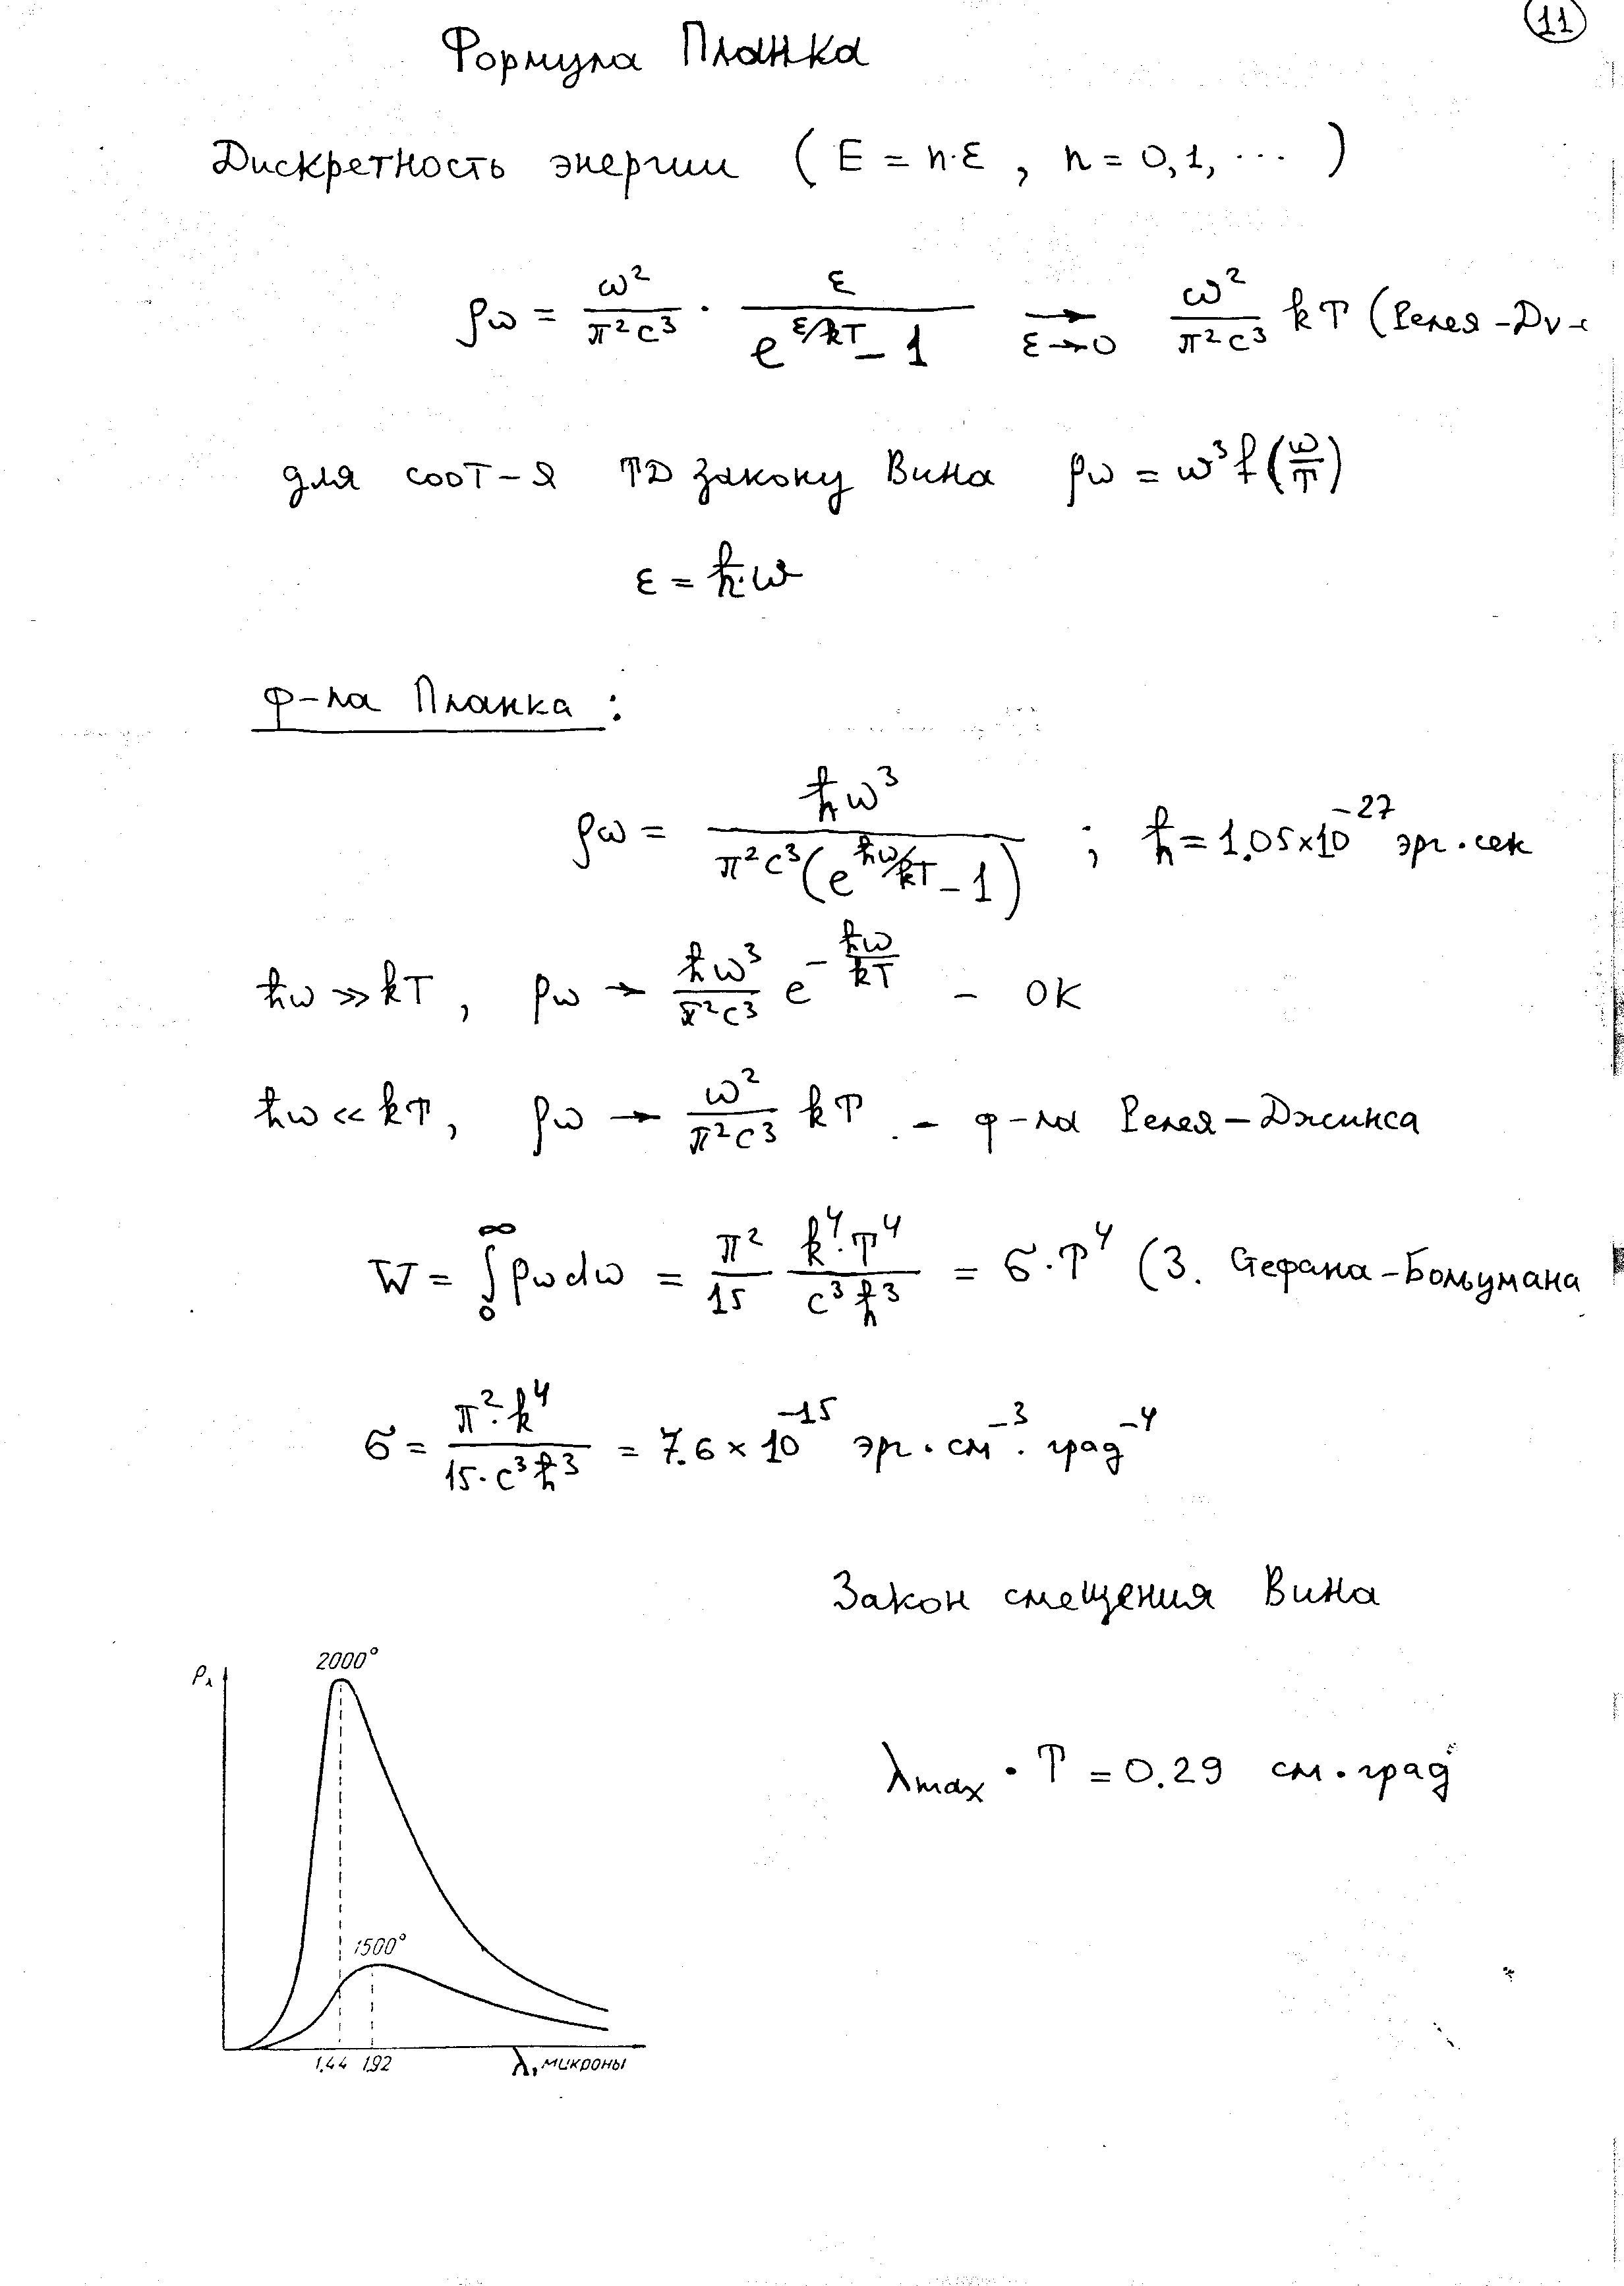 11
Формула Планка
Дискретность энергии ( E = n·ε , n = 0,1, ··· )
ρω = ω²/π²c³ · ε/(e^(ε/kT) − 1) →(ε→0) ω²/π²c³ kT (Релея-
для соот-я ТД закону Вина ρω = ω³f(ω/T)
ε = ħ·ω
ф-ла Планка :
ρω = ħω³/(π²c³(e^(ħω/kT) − 1)) ; ħ = 1.05×10⁻²⁷ эрг·сек
ħω ≫ kT , ρω → ħω³/π²c³ e^(−ħω/kT) – OK
ħω ≪ kT, ρω → ω²/π²c³ kT – ф-ла Релея-Джинса
W = ∫₀^∞ ρω dω = π²/15 k⁴·T⁴/c³ħ³ = σ·T⁴ (З. Стефана-Больцмана
σ = π²·k⁴/15·c³ħ³ = 7.6 × 10⁻¹⁵ эрг·см⁻³·град⁻⁴
Закон смещения Вина
λmax · T = 0.29 см·град
2000°
ρλ
1500°
1,44 1,92 λ, микроны